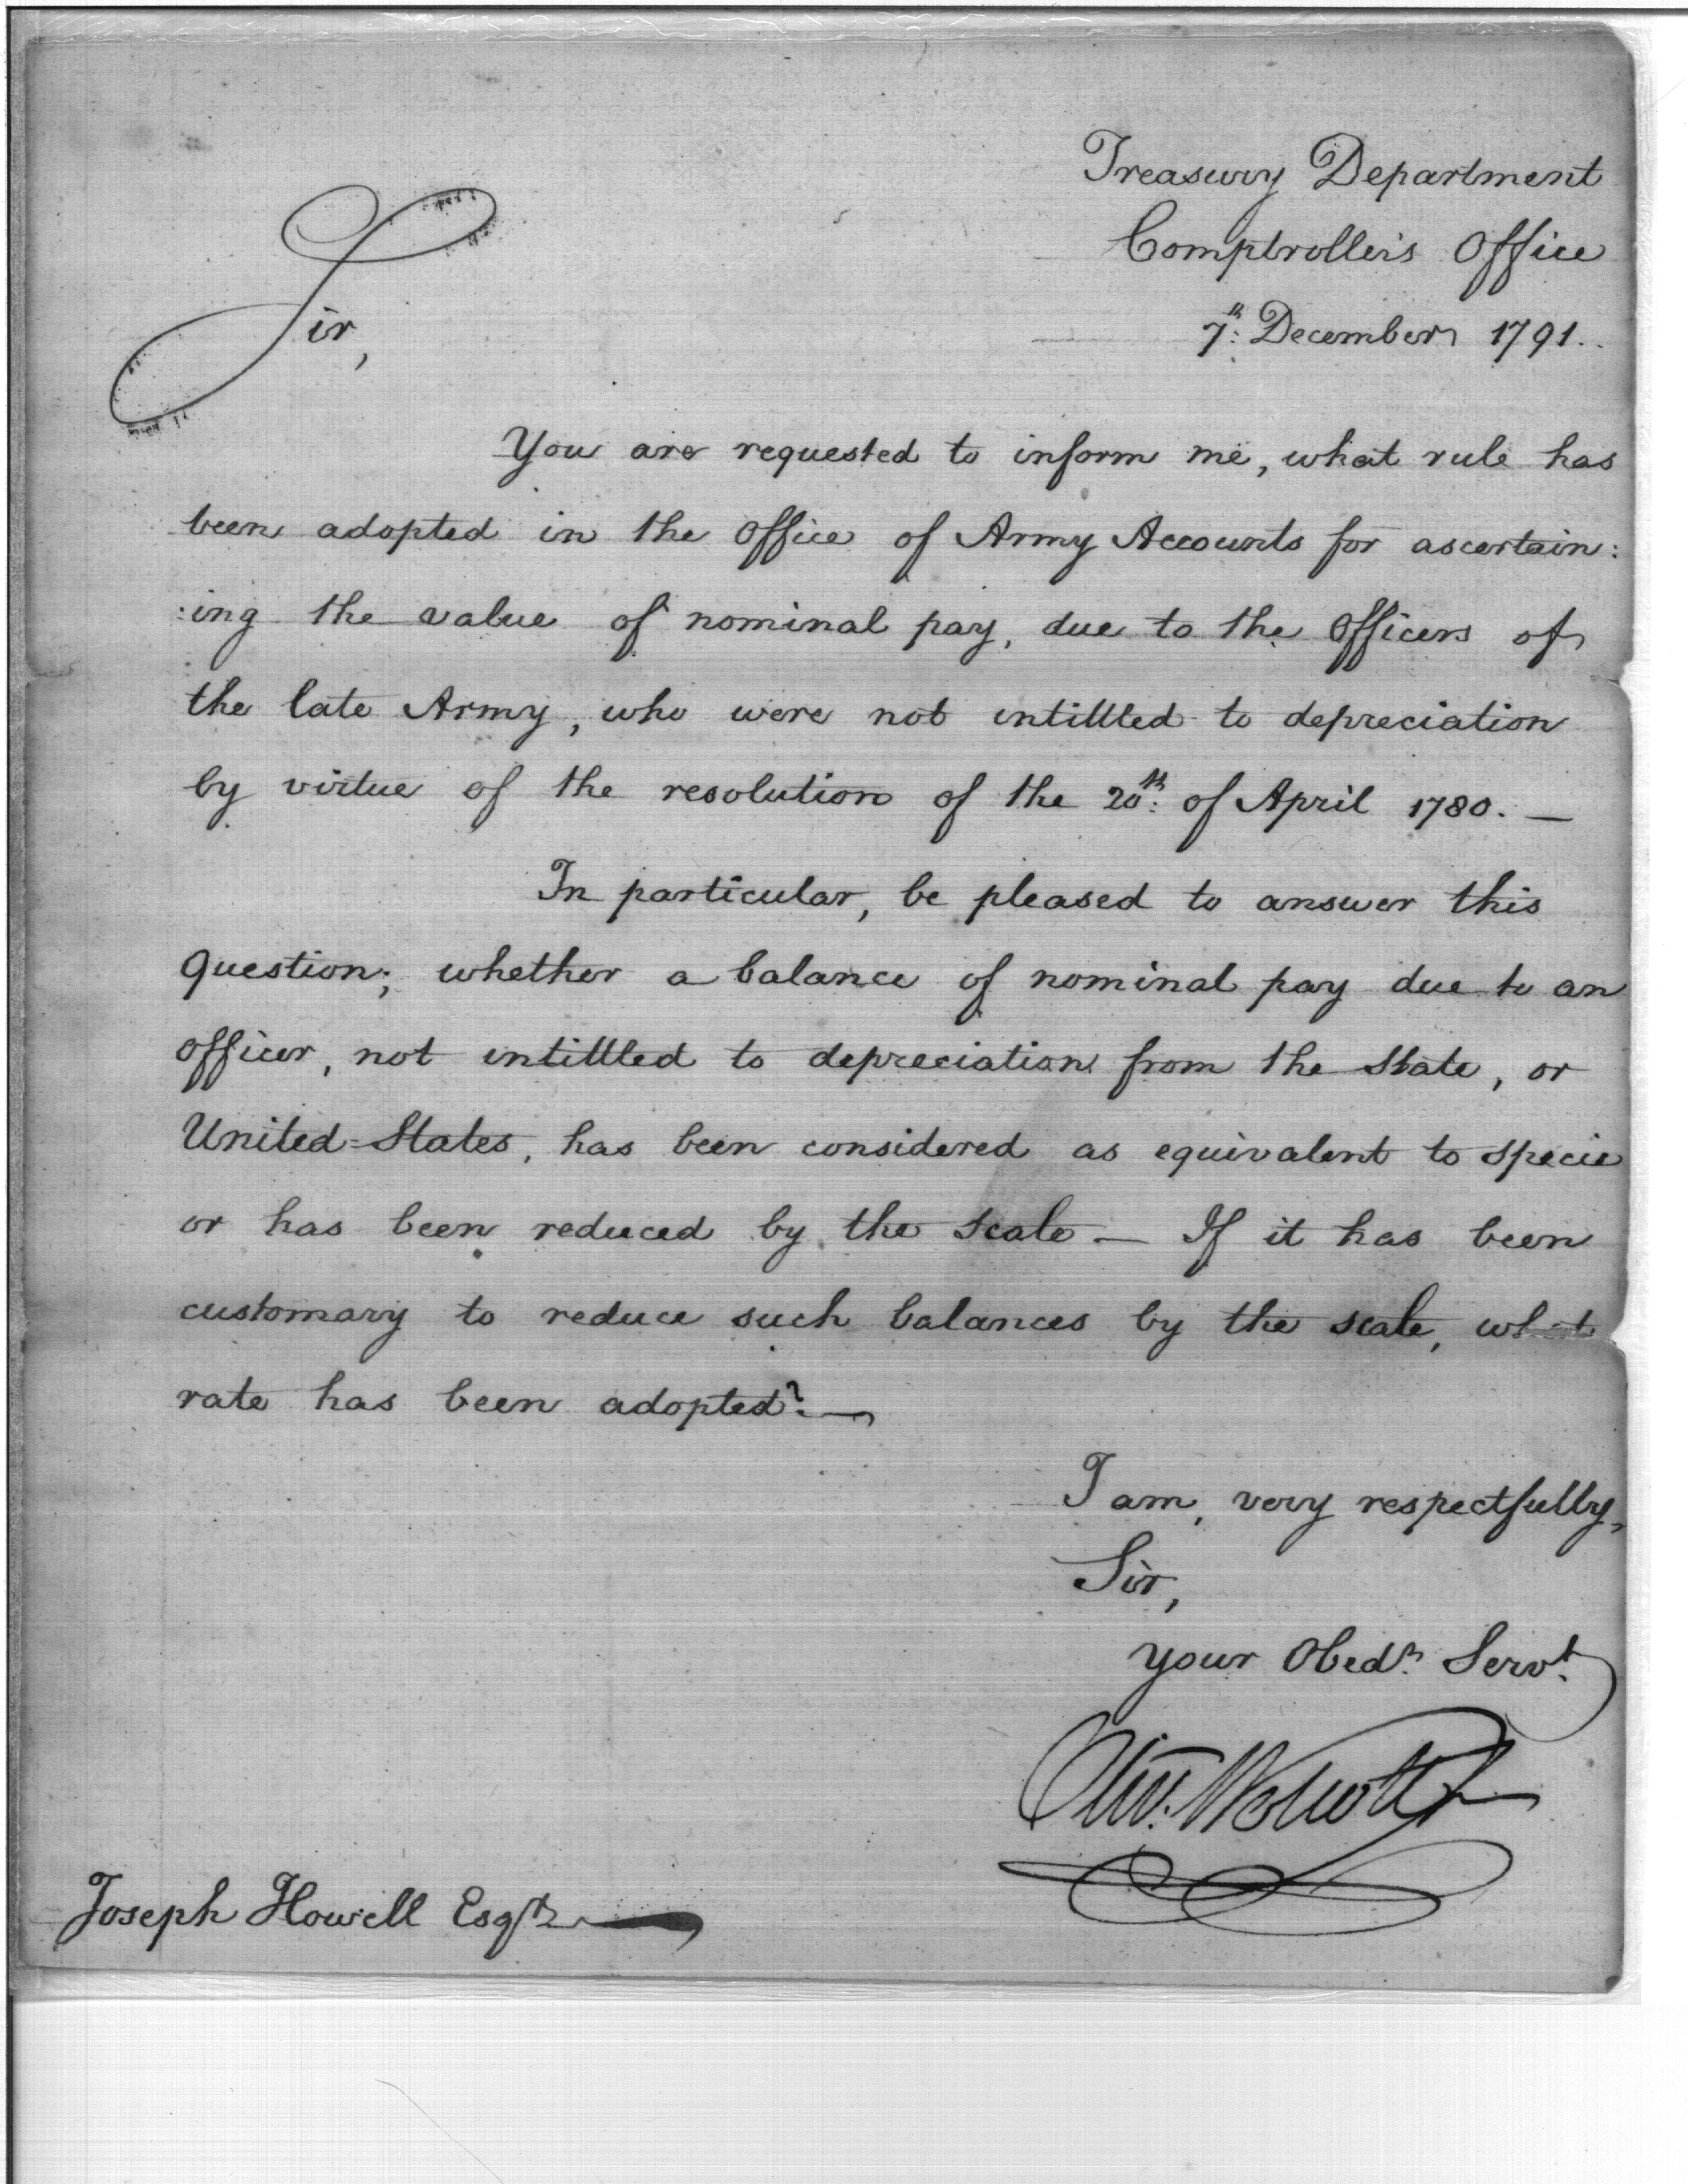 Treasury Department
Comptroller's Office
7th: December 1791.
Sir,
You are requested to inform me, what rule has
been adopted in the Office of Army Accounts for ascertain:
:ing the value of nominal pay, due to the Officers of
the late Army, who were not intittled to depreciation
by virtue of the resolution of the 20th: of April 1780. —
In particular, be pleased to answer this
question; whether a balance of nominal pay due to an
officer, not intittled to depreciation from the State, or
United=States, has been considered as equivalent to specie
or has been reduced by the scale — If it has been
customary to reduce such balances by the scale, what
rate has been adopted? —
I am, very respectfully,
Sir,
your Obedt. Servt.
Oliv. Wolcott Jr
Joseph Howell Esqr